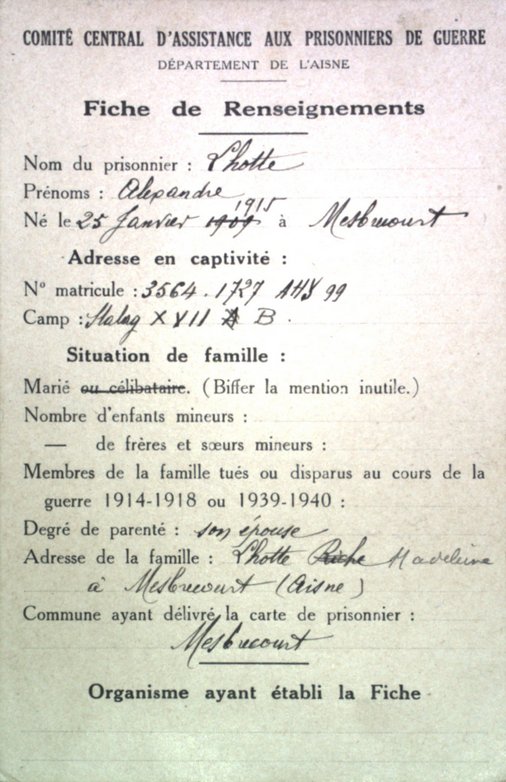 COMITÉ CENTRAL D'ASSISTANCE AUX PRISONNIERS DE GUERRE
DÉPARTEMENT DE L'AISNE
Fiche de Renseignements
Nom du prisonnier : Lhotte
Prénoms : Alexandre
Né le 25 Janvier 1909 1915 à Mesbrecourt
Adresse en captivité :
N° matricule : 3564.1727
Camp : Stalag XVII A B.
Situation de famille :
Marié ou célibataire. (Biffer la mention inutile.)
Nombre d'enfants mineurs :
— de frères et sœurs mineurs :
Membres de la famille tués ou disparus au cours de la
guerre 1914-1918 ou 1939-1940 :
Degré de parenté : son épouse
Adresse de la famille : Lhotte Madeleine
à Mesbrecourt (Aisne)
Commune ayant délivré la carte de prisonnier :
Mesbrecourt
Organisme ayant établi la Fiche